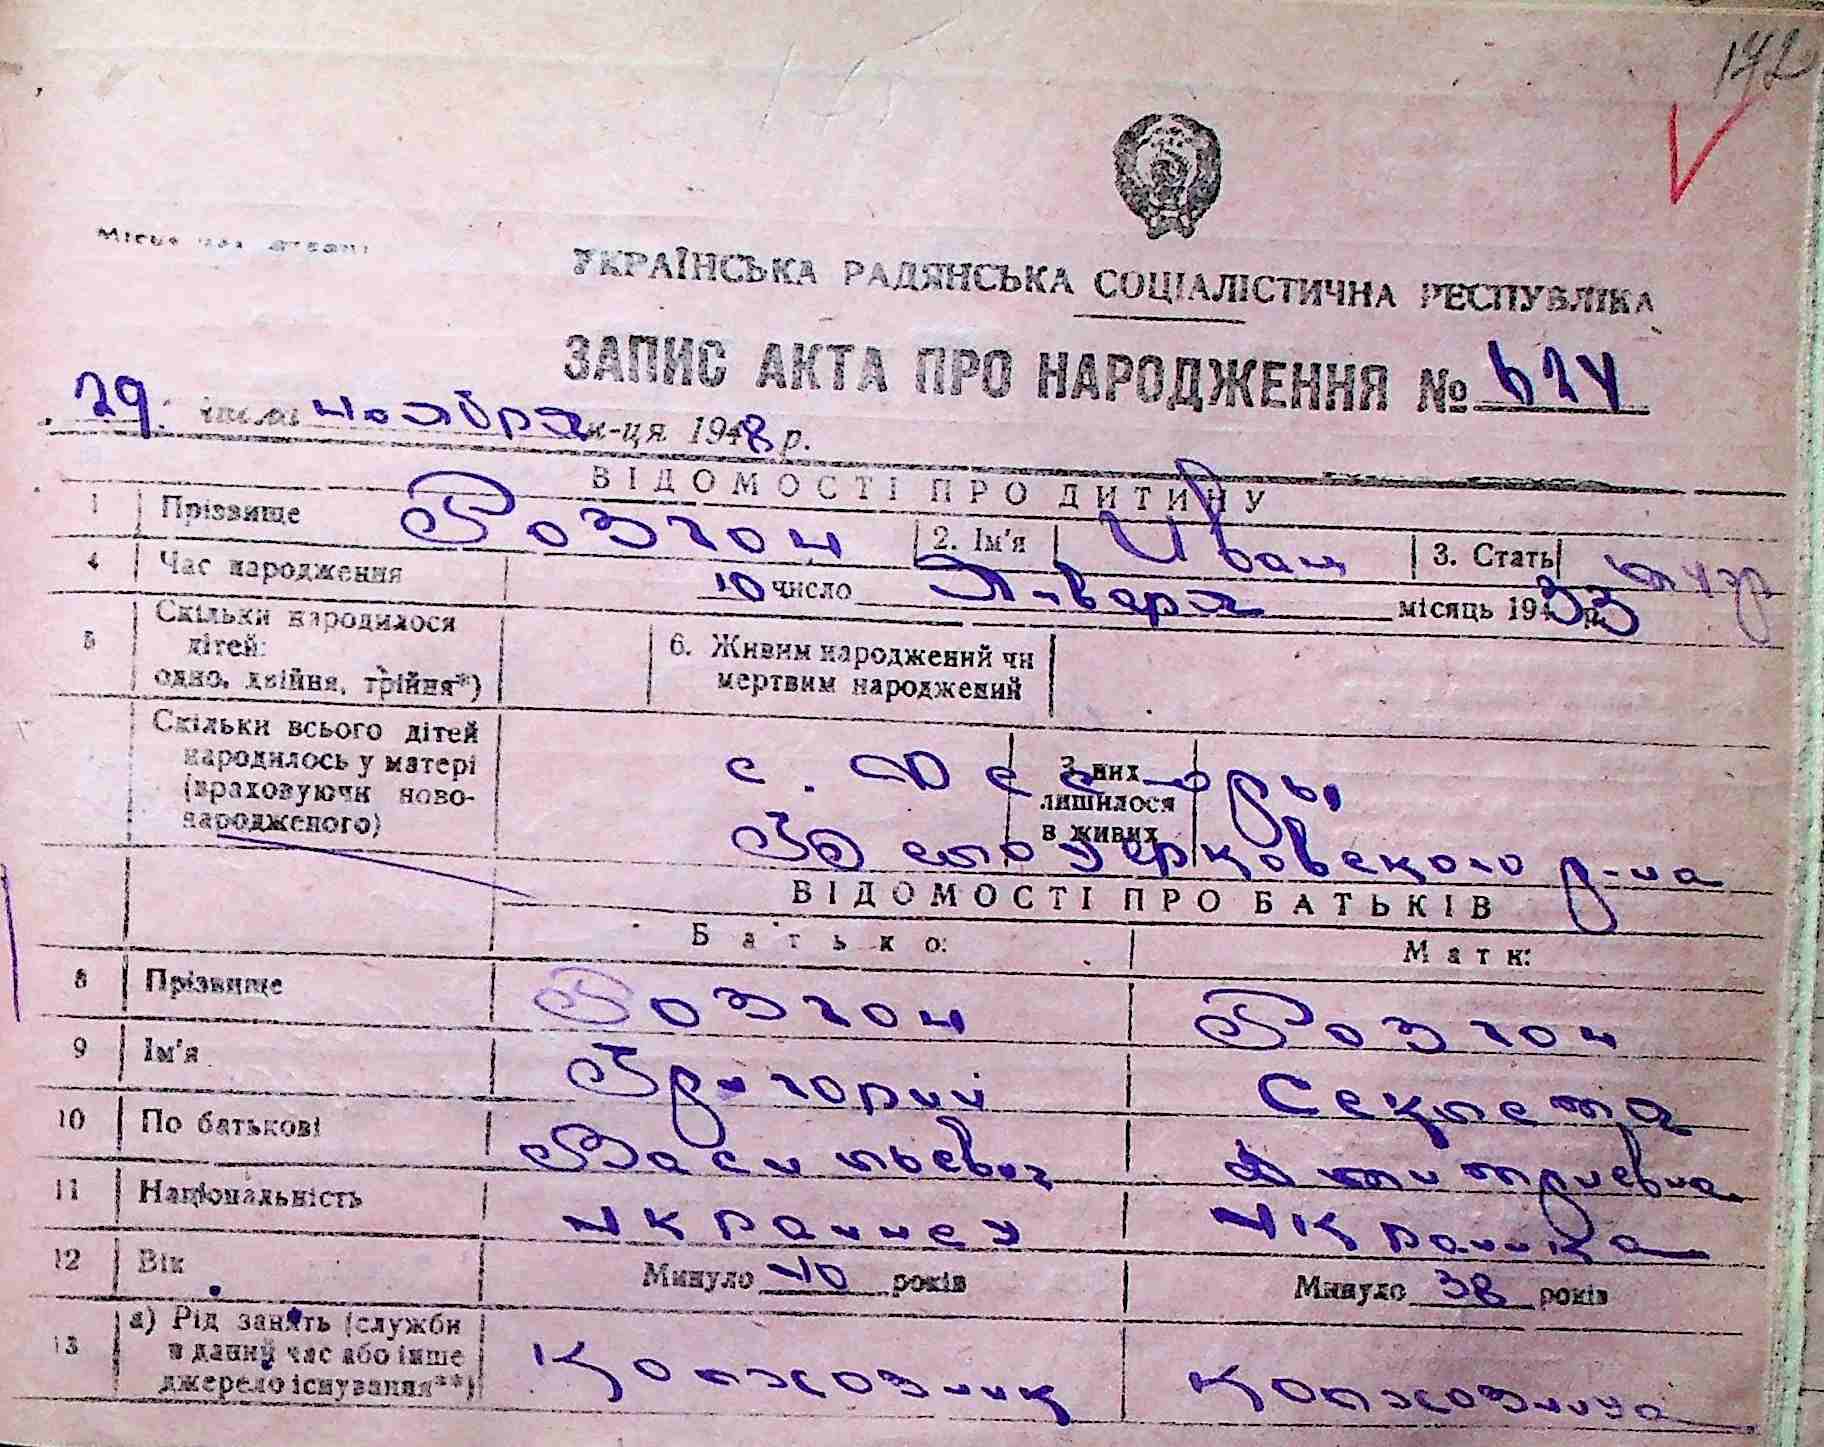 142
УКРАЇНСЬКА РАДЯНСЬКА СОЦІАЛІСТИЧНА РЕСПУБЛІКА
ЗАПИС АКТА ПРО НАРОДЖЕННЯ № 624
29. числа ноября м-ця 1948 р.
ВІДОМОСТІ ПРО ДИТИНУ
1 Прізвище Розгон 2. Ім'я Иван 3. Стать муж
4 Час народження 10 число Января місяць 1933 р.
5 Скільки народилося дітей: одно, двійня, трійня*) 6. Живим народжений чи мертвим народжений
Скільки всього дітей народилось у матері (враховуючи новонародженого) З них лишилося в живих
с.
Белоцерковского р-на
ВІДОМОСТІ ПРО БАТЬКІВ
Батько: Мати:
8 Прізвище Розгон Розгон
9 Ім'я Григорий Секлета
10 По батькові Васильевич Дмитриевна
11 Національність украинец украинка
12 Вік Минуло 40 років Минуло 38 років
13 а) Рід занять (служби в даний час або інше джерело існування**) колхозник колхозница